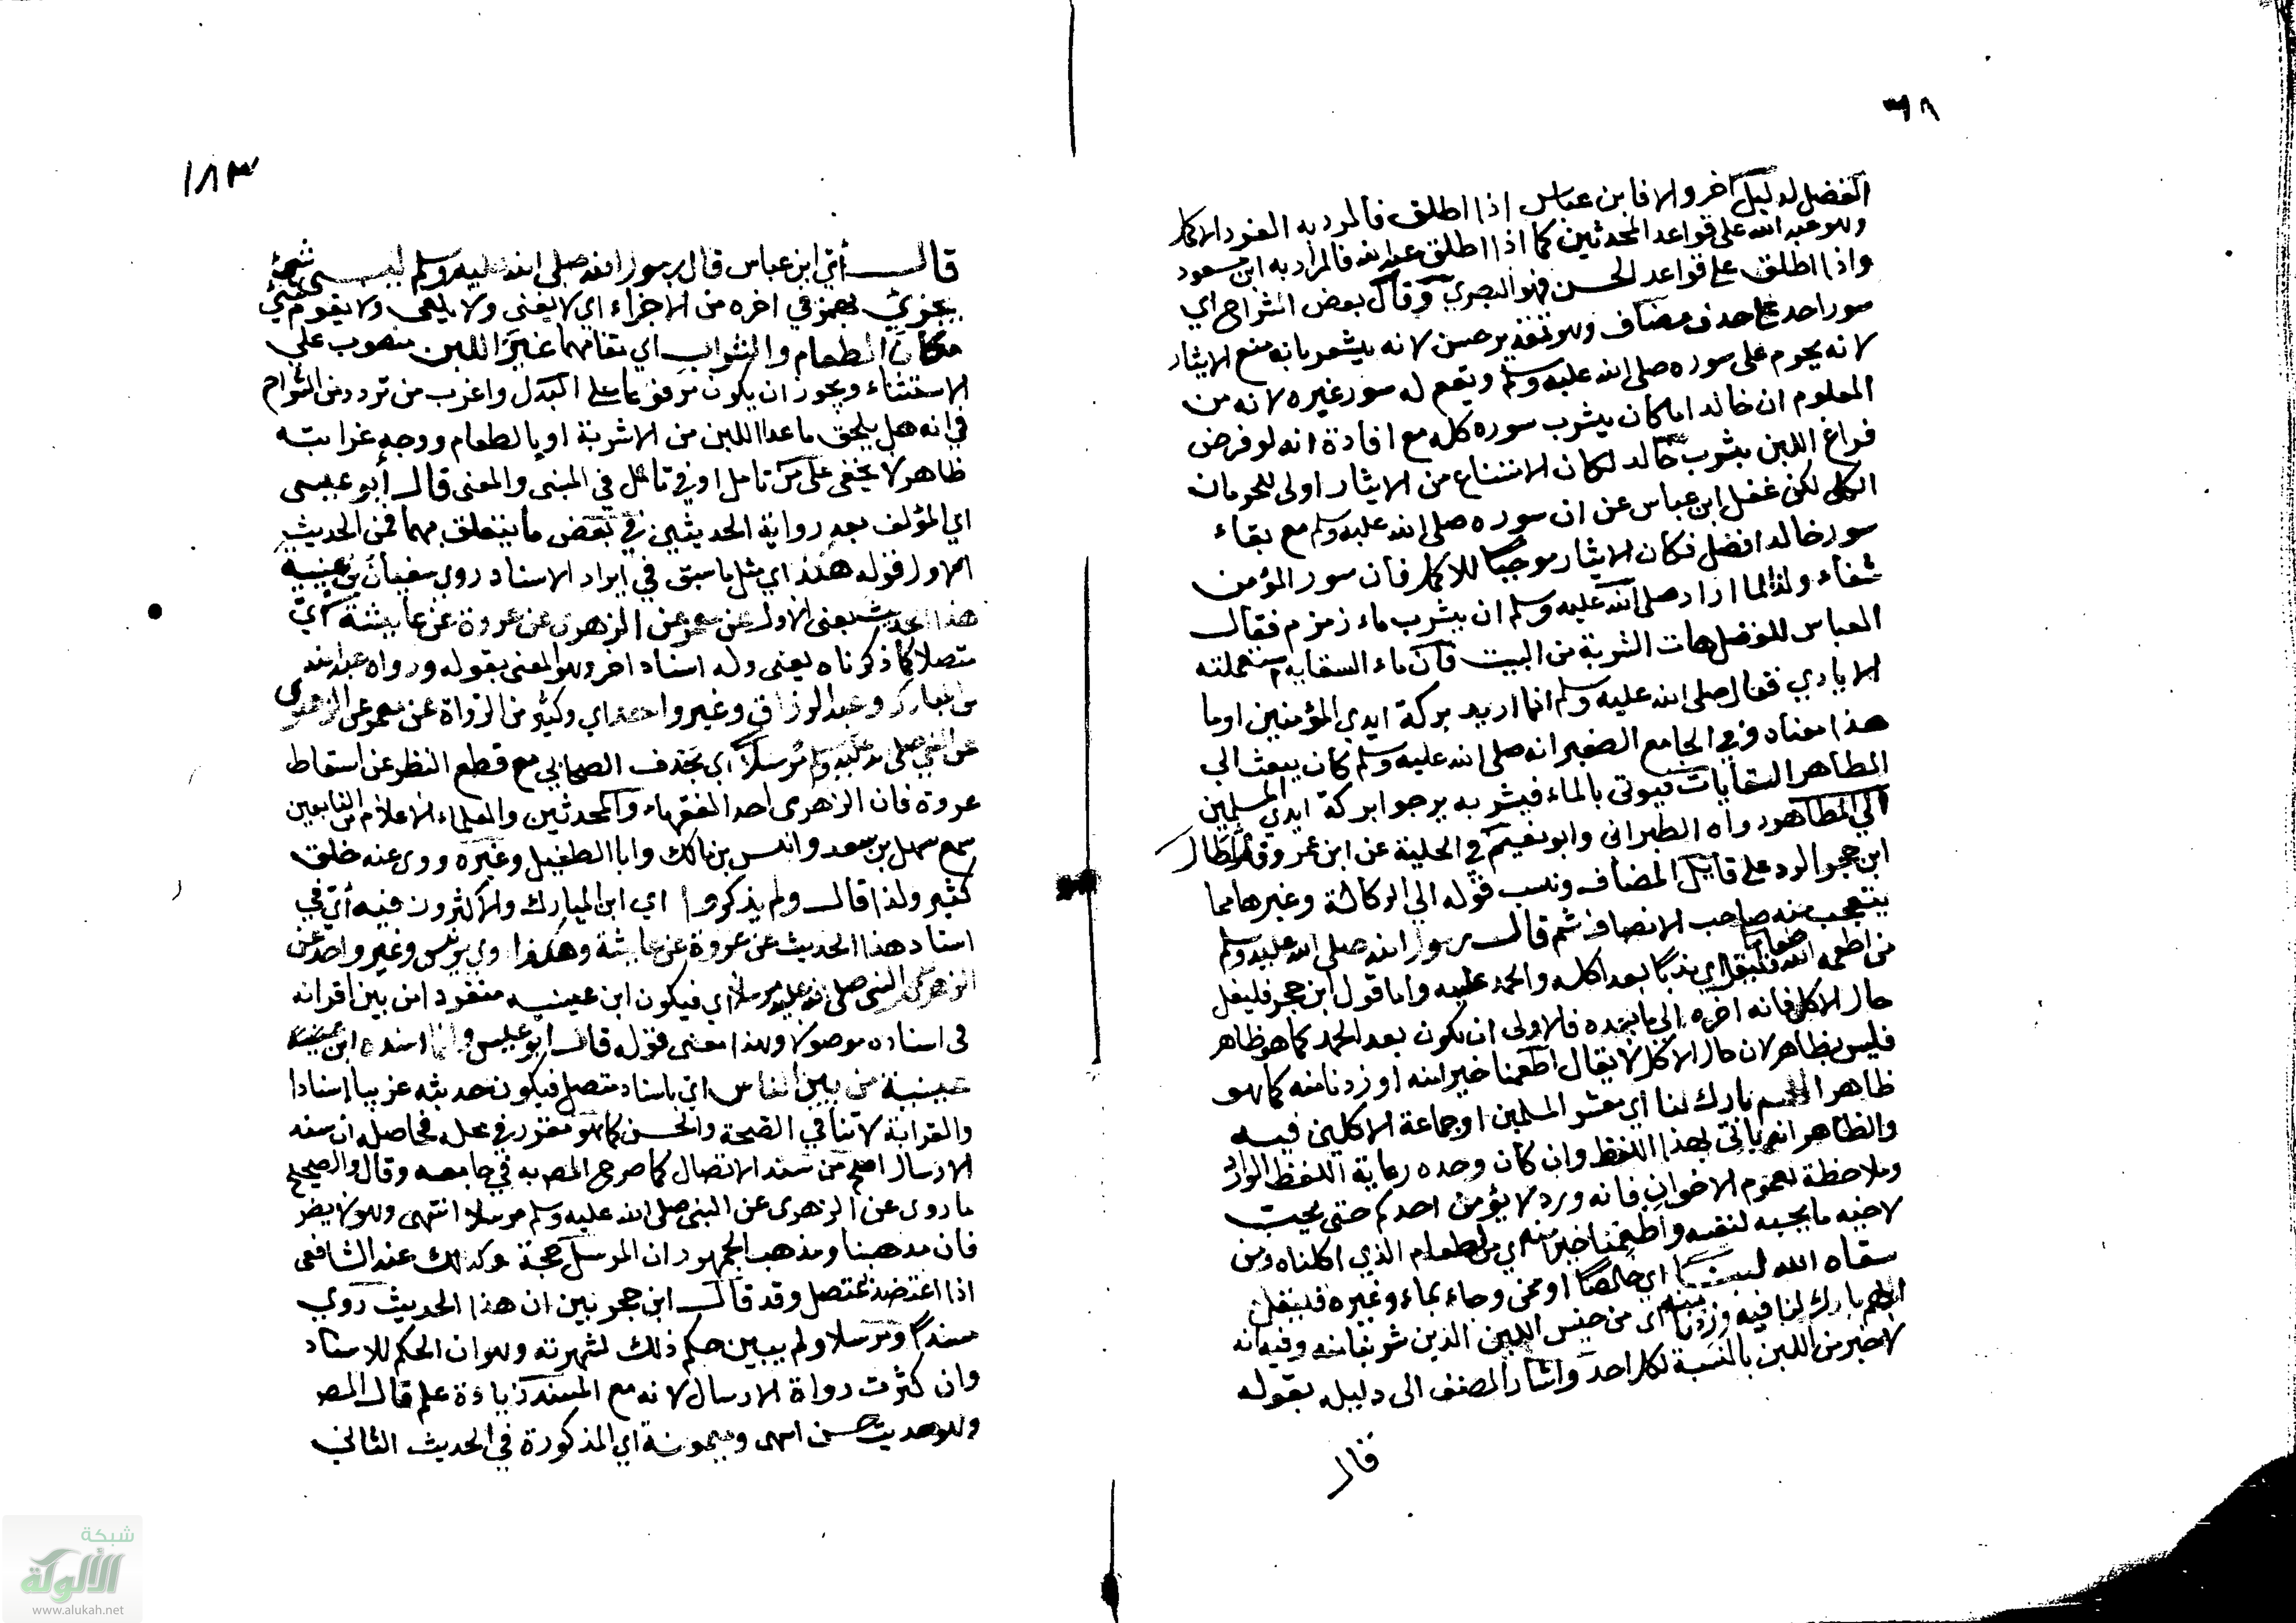 ٦٨
الفضل لدليل آخر والا فابن عباس اذا اطلق فالمرد به الفرد الاكمل
وهو عبد الله على قواعد المحدثين كما اذا اطلق عبد الله فالمراد به ابن مسعود
واذا اطلق على قواعد الحسن فهو البصري وقال بعض الشراح اي
سور احد على حذف مضاف وهو غير حسن لانه يشعر بانه منع الايثار
لانه يحرم على سوره صلى الله عليه وسلم ويقع له سور غيره لانه من
المعلوم ان خالدا ما كان يشرب سوره كله مع افادة انه لو فرض
فراغ اللبن بشرب خالد لكان الامتناع من الايثار اولى للحرمان
الكلي لكن غفل ابن عباس عن ان سوره صلى الله عليه وسلم مع بقاء
سور خالد افضل فكان الايثار موجبا للاكمل فان سور المؤمن
شفاء ولذا لما اراد صلى الله عليه وسلم ان يشرب ماء زمزم فقال
العباس للفضل هات الشربة من البيت فان ماء السقاية استعملته
الايادي فقال صلى الله عليه وسلم انما اريد بركة ايدي المؤمنين او ما
هذا معناه وفي الجامع الصغير انه صلى الله عليه وسلم كان يبعث الي
المطاهر السقايات فيوتى بالماء فيشربه يرجوا بركة ايدي المسلمين
الي المطاهر رواه الطبرانى وابو نعيم في الحلية عن ابن عمر وقد اطال
ابن حجر الرد على قايل المضاف ونسب قوله الي الركاكة وغيرها مما
يتعجب منه صاحب الانصاف ثم قال رسول الله صلى الله عليه وسلم
من اطعمه الله طعاما فليقل اي ندبا بعد اكله والحمد عليه واما قول ابن حجر فليقل
حال الاكل فانه اخره الي ما بعده فالاولى ان يكون بعد الحمد كما هو ظاهر
فليس بظاهر لان حال الاكل لا يقال اطعمنا خيرا منه او زدنا منه كما هو
ظاهر اللهم بارك لنا اي معشر المسلمين او جماعة الاكلين فيه
والظاهر انه ياتى بهذا اللفظ وان كان وحده رعاية اللفظ الوارد
وملاحظة لعموم الاخوان فانه ورد لا يؤمن احدكم حتى يحب
لاخيه ما يحبه لنفسه واطعمنا خيرا منه اي من الطعام الذي اكلناه ومن
سقاه الله لبنا اي خالصا او ممزوجا بماء وغيره فليقل
اللهم بارك لنا فيه وزدنا منه اي من جنس اللبن الذين شربنا منه وفيه انه
لا خير من اللبن بالنسبة لكل احد واشار المصنف الى دليله بقوله
قال
١٨٣
قال أي ابن عباس قال رسول الله صلى الله عليه وسلم ليس شئ
يجزئ بهمز في اخره من الاجزاء اي لا يغنى ولا يكفى ولا يقوم شئ
مكان الطعام والشراب اي مقامهما غير اللبن منصوب علي
الاستثناء ويجوز ان يكون مرفوعا على البدل واغرب من تردد من الشراح
في انه هل يلحق ما عدا اللبن من الاشربة او بالطعام ووجه غرابته
ظاهر لا يخفى على من تامل ادنى تامل في المبنى والمعنى قال أبو عيسى
اي المؤلف بعد رواية الحديثين في بعض ما يتعلق بهما فمن الحديث
الاول قوله هكذا اي مثل ما سبق في ايراد الاسناد روي سفيان بن عيينة
هذا الحديث يعنى الاول عن معمر عن الزهري عن عروة عن عايشة أي
متصلا كما ذكرناه يعنى وله اسناد اخر وهو المعنى بقوله ورواه عبد الله
بن المبارك وعبد الرزاق وغير واحد اي وكثير من الرواة عن معمر عن الزهري
عن النبي صلى الله عليه وسلم مرسلا أي بحذف الصحابي مع قطع النظر عن اسقاط
عروة فان الزهرى احد الفقهاء والمحدثين والعلماء الاعلام من التابعين
سمع سهل بن سعد وانس بن مالك وابا الطفيل وغيره وروى عنه خلق
كثير ولذا قال ولم يذكروا اي ابن المبارك والاكثرون فيه أي في
اسناد هذا الحديث عن عروة عن عايشة وهكذا روي يونس وغير واحد عن
الزهري عن النبي صلى الله عليه وسلم مرسلا اي فيكون ابن عيينه منفردا من بين اقرانه
فى اسناده موصولا وهذا معنى قوله قال ابو عيسى وانما اسنده ابن عيينة
من بين الناس اي باسناد متصل فيكون حديثه غريبا اسنادا
والغرابة لا تنافي الصحة والحسن كما هو مقرر في محله فحاصله أن سند
الارسال اصح من سند الاتصال كما صرح المصر به في جامعه وقال والصحيح
ما روى عن الزهرى عن النبي صلى الله عليه وسلم مرسلا انتهى وهو لا يضر
فان مذهبنا ومذهب الجمهور ان المرسل حجة وكذلك عند الشافعى
اذا اعتضد بمتصل وقد قال ابن حجر بين ان هذا الحديث روي
مسندا ومرسلا ولم يبين حكم ذلك لشهرته وهو ان الحكم للاسناد
وان كثرت رواة الارسال لانه مع المسند زيادة علم قال المصر
وهو حديث حسن انتهى وميمونة اي المذكورة في الحديث الثاني
شبكة
الألوكة
www.alukah.net